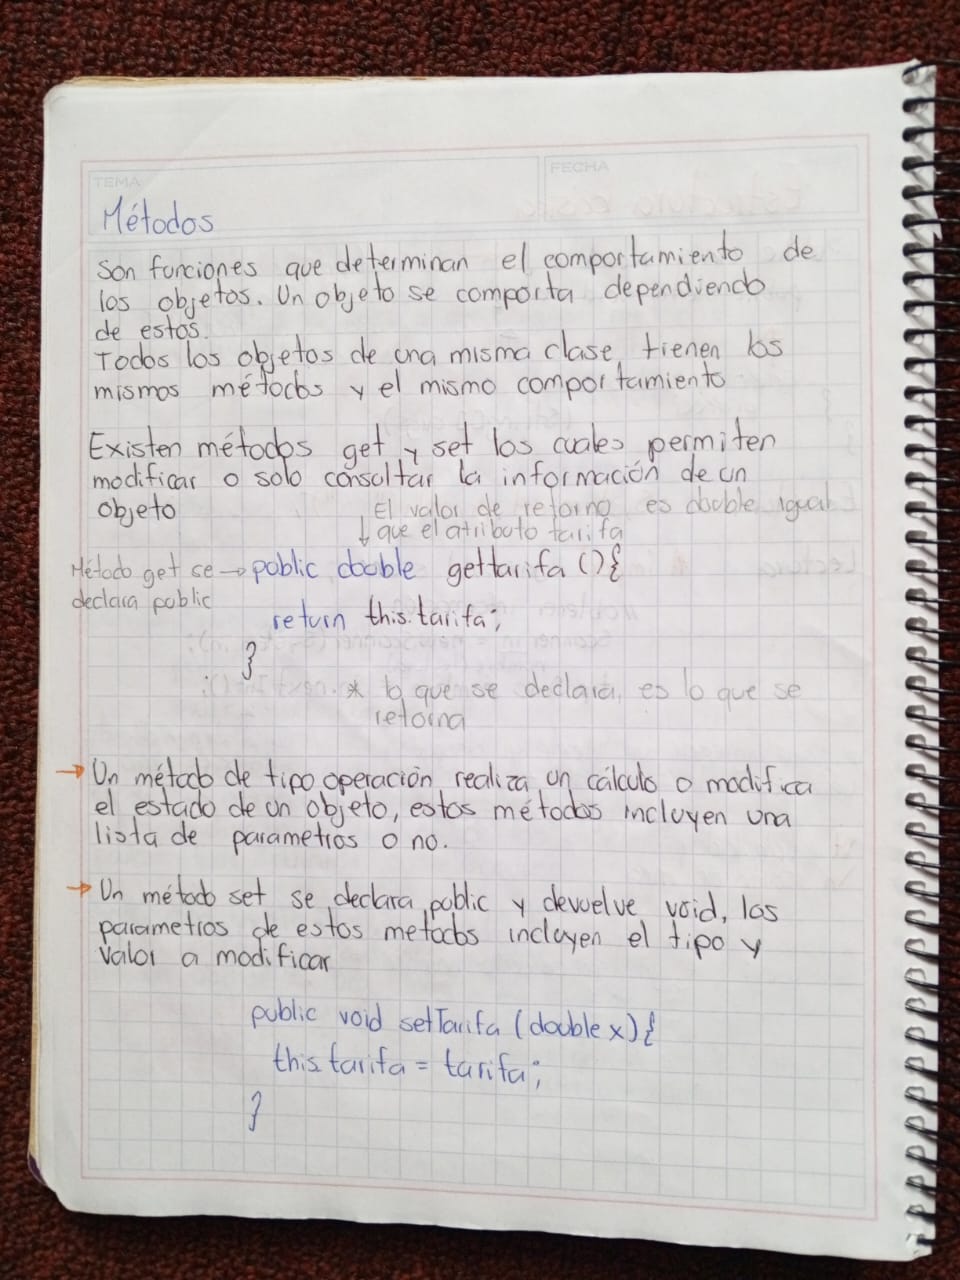 TEMA
FECHA
Métodos
Son funciones que determinan el comportamiento de
los objetos. Un objeto se comporta dependiendo
de estos.
Todos los objetos de una misma clase, tienen los
mismos métodos y el mismo comportamiento
Existen métodos get y set los cuales permiten
modificar o solo consultar la información de un
objeto
El valor de retorno es double igual
↓ que el atributo tarifa
Método get se → public double gettarifa () {
declara public
return this.tarifa;
}
* lo que se declara, es lo que se
retorna
→ Un método de tipo operación realiza un cálculo o modifica
el estado de un objeto, estos métodos incluyen una
lista de parametros o no.
→ Un método set se declara public y devuelve void, los
parametros de estos metodos incluyen el tipo y
valor a modificar
public void setTarifa (double x) {
this tarifa = tarifa;
}